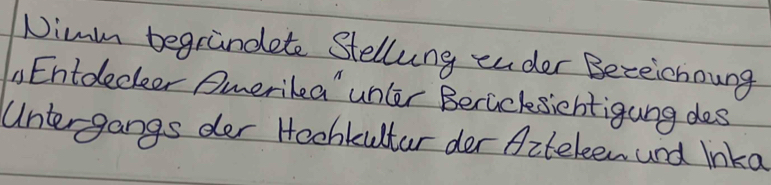 Nimm begründete Stellung zu der Bezeichnung
„Entdecker Amerika" unter Berücksichtigung des
Untergangs der Hochkultur der Azteken und Inka